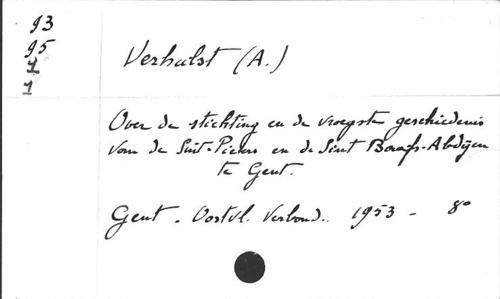 93
95
1
1
Verhulst (A.)
Over de stichting en de vroegste geschiedenis
van de Sint-Pieters en de Sint Baafs-Abdijen
te Gent.
Gent. Oostvl. Verbond.. 1953 - 8°